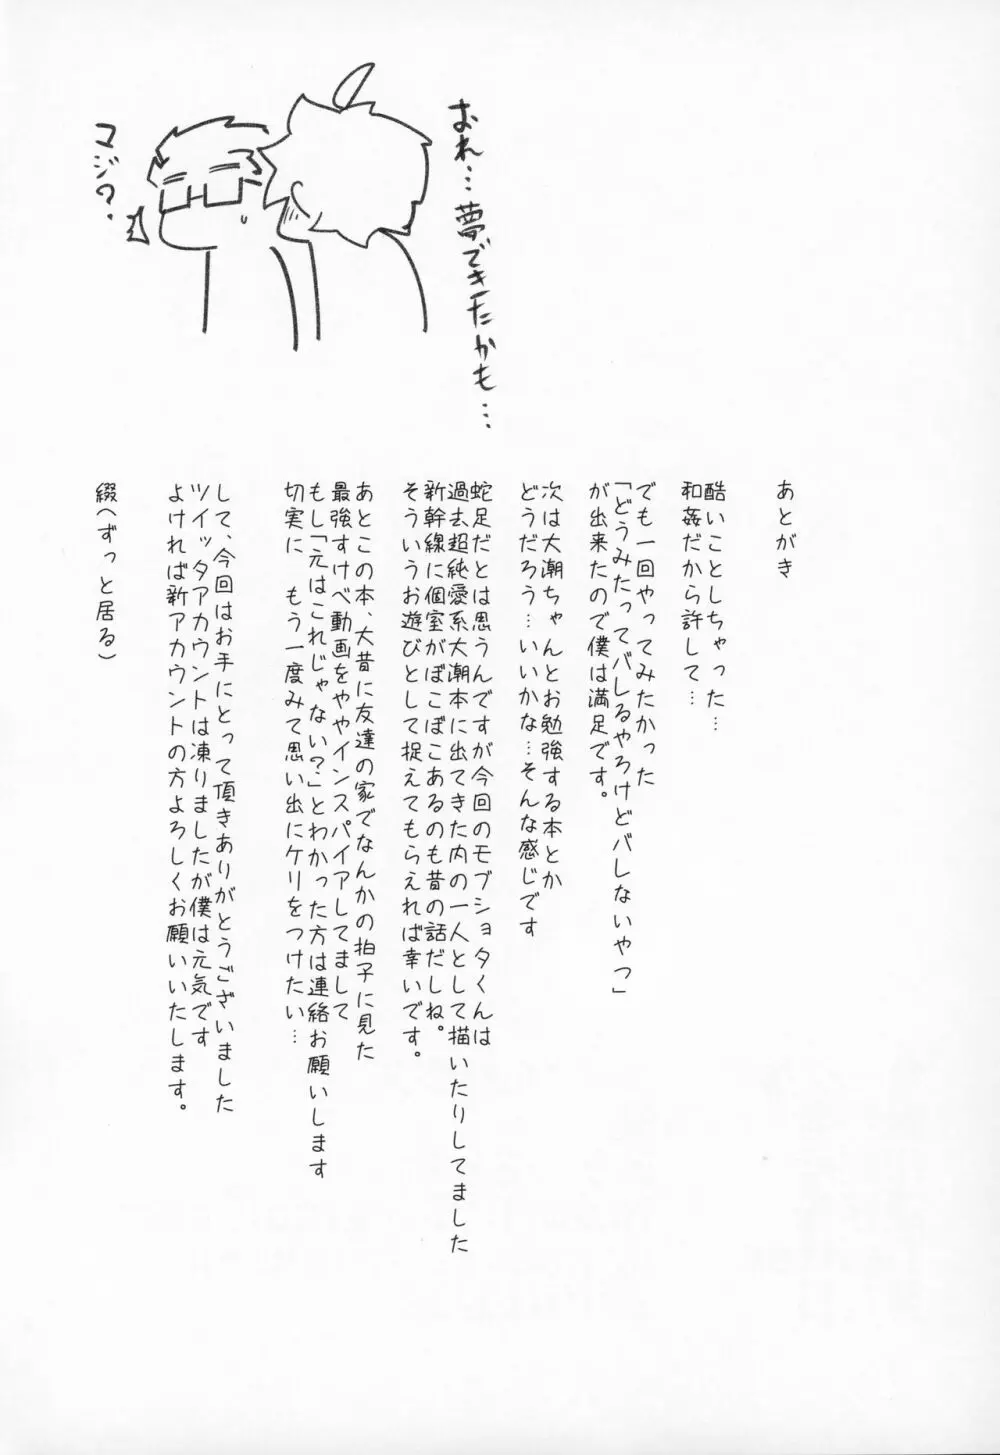 おれ…夢できたかも…
マジ?
あとがき
酷いことしちゃった…
和姦だから許して…
でも一回やってみたかった
「どうみたってバレるやろけどバレないやつ」
が出来たので僕は満足です。
次は大潮ちゃんとお勉強する本とか
どうだろう…いいかな…そんな感じです
蛇足だとは思うんですが今回のモブショタくんは
過去超純愛系大潮本に出てきた内の一人として描いたりしてました
新幹線に個室がぽこぽこあるのも昔の話だしね。
そういうお遊びとして捉えてもらえれば幸いです。
あとこの本、大昔に友達の家でなんかの拍子に見た
最強すけべ動画をややインスパイアしてまして
もし「元はこれじゃない?」とわかった方は連絡お願いします
切実に もう一度みて思い出にケリをつけたい…
して、今回はお手にとって頂きありがとうございました
ツイッタアカウントは凍りましたが僕は元気です
よければ新アカウントの方よろしくお願いいたします。
綴へずっと居る)